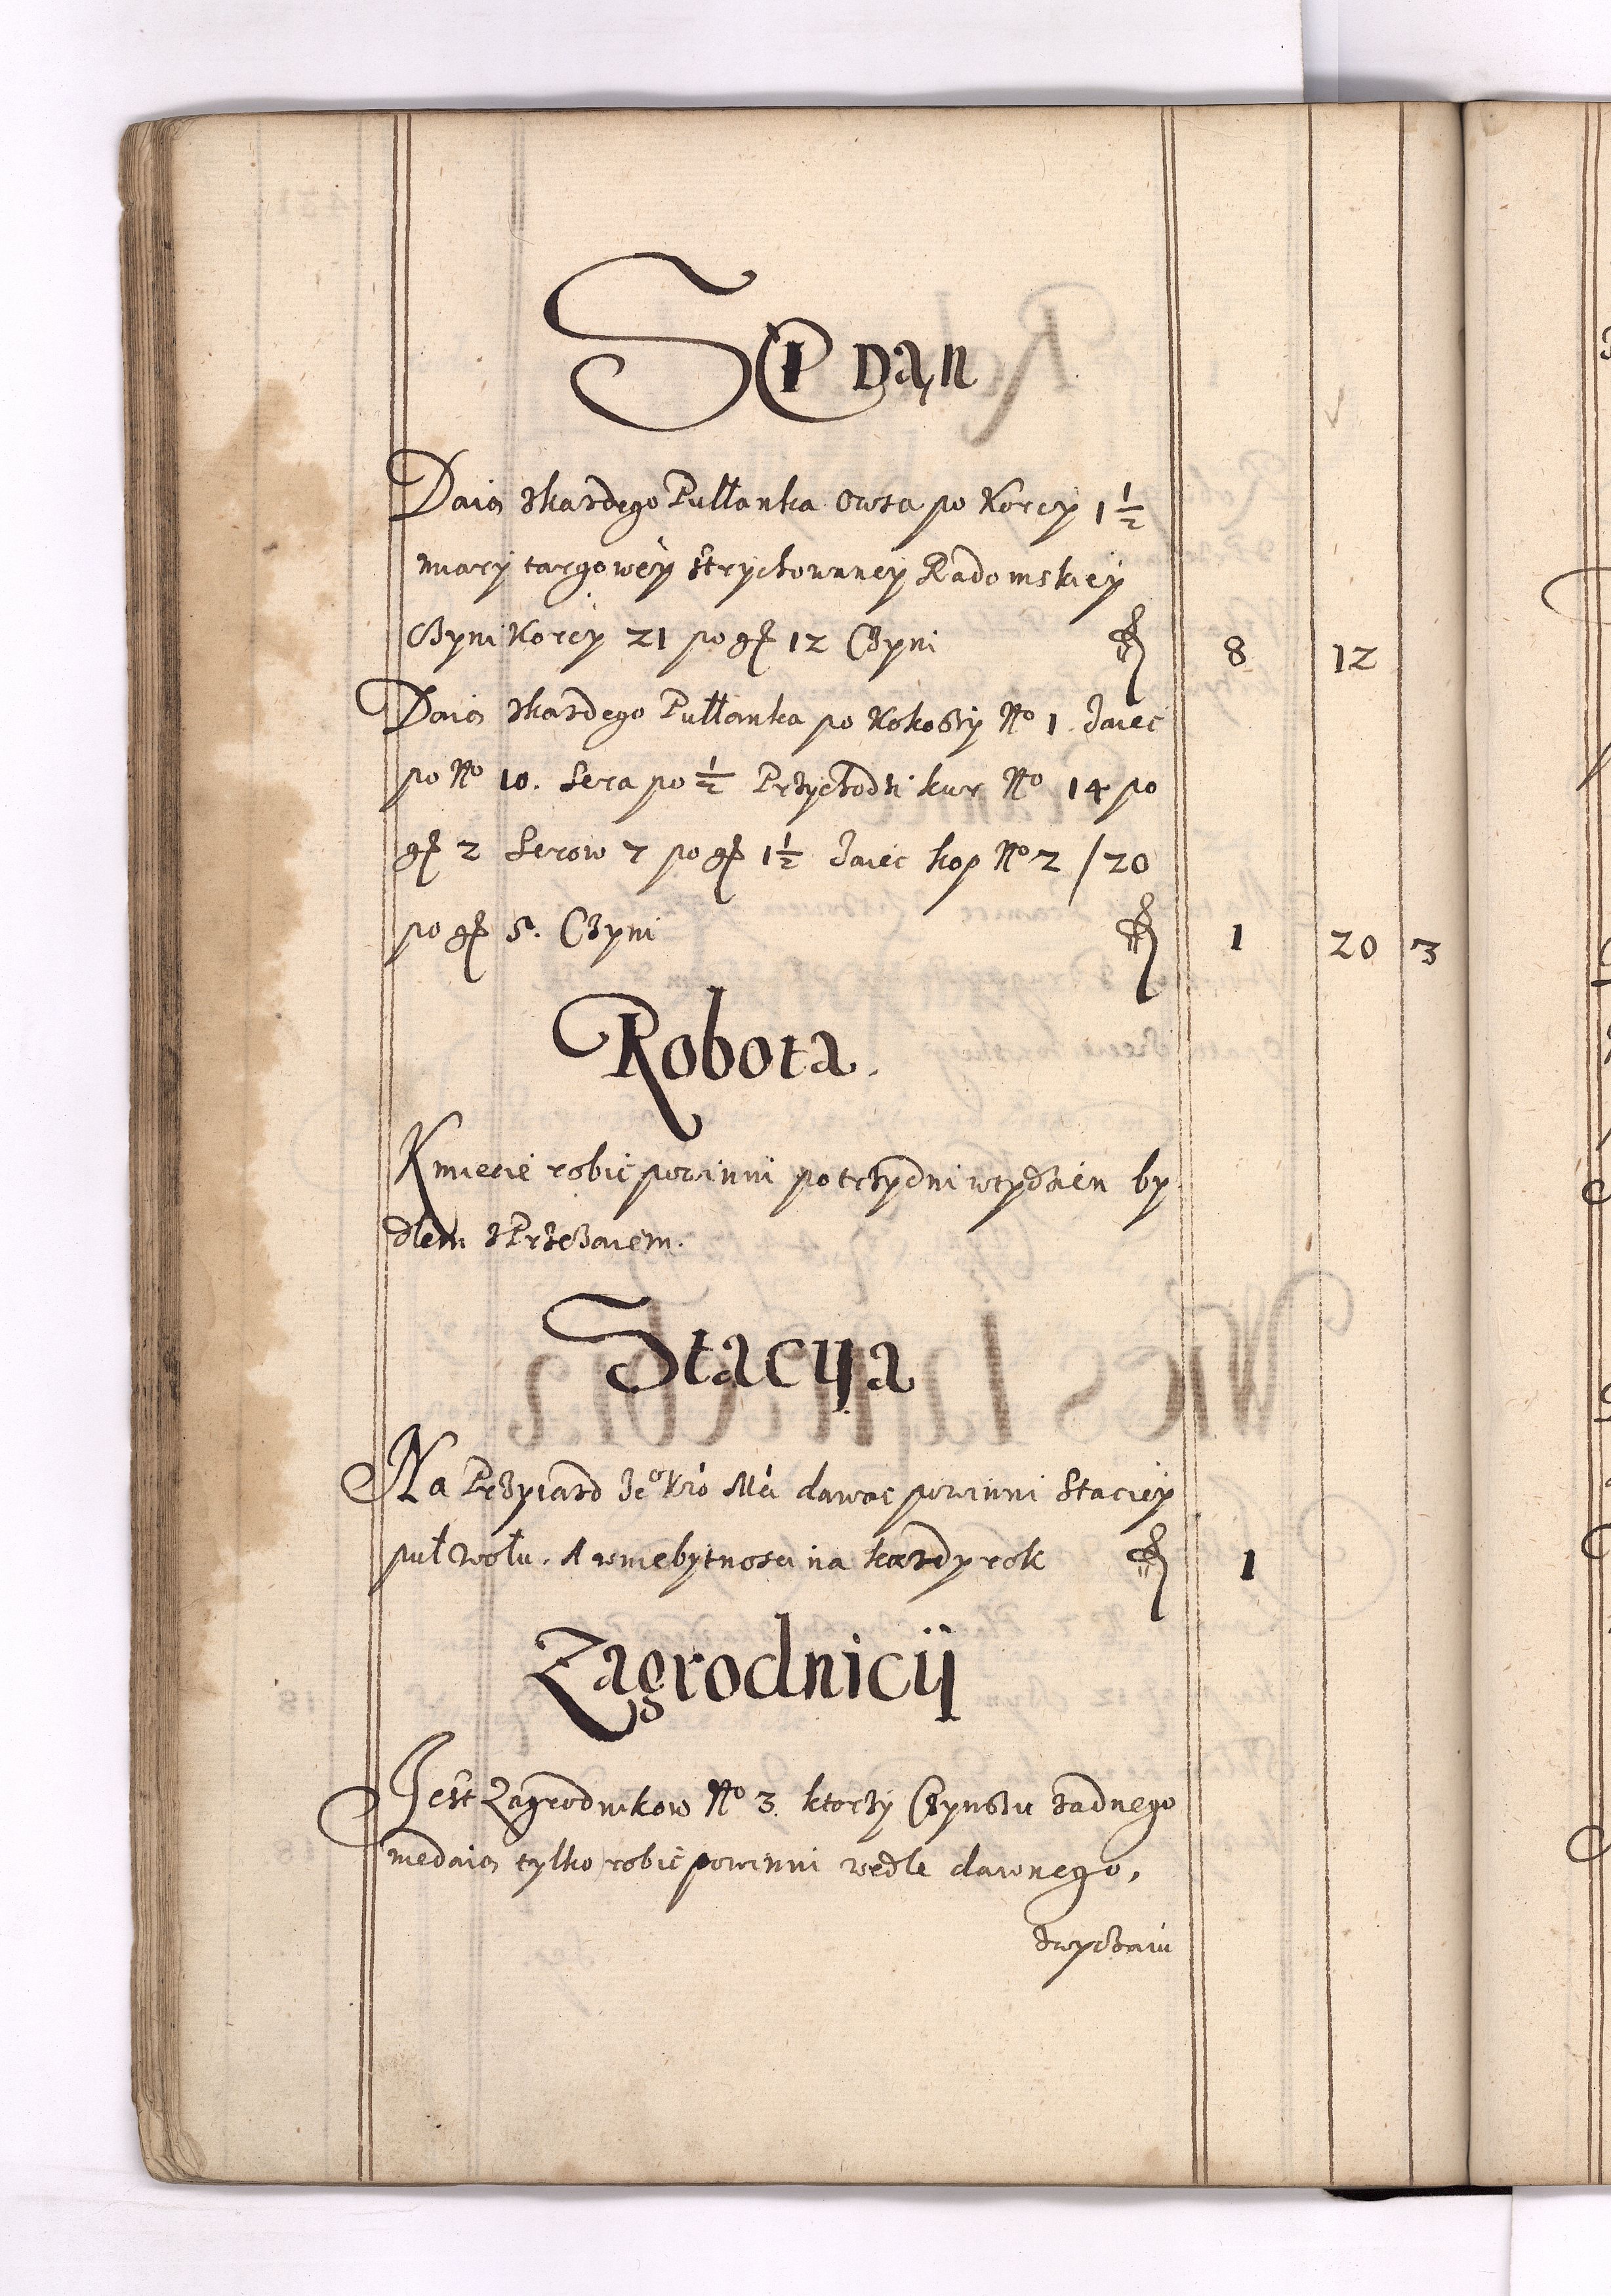 Sep Dań
Daią zkazdego Pułłanka Owsa po Korcy 1 1/2
miary targowey Strychowaney Radomskiey
Czyni Korcy 21 po gr 12 Czyni f 8 12
Daią zkazdego Pułłanka po Kokoszy No 1 Jaiec
po No 10. Sera po 1/2 Przychodzi kur No 14 po
gr 2 Serow 7 po gr 1 1/2 Jaiec kop No 2 / 20
po gr 5. Czyni f 1 20 3
Robota.
Kmiecie robić powinni po trzy dni wtydzień by
dłem zPrzeżaiem.
Stacyia
Na Przyiazd Jeo Kró Mći dawac powinni Staciey
puł wołu. A wniebytnosci na kazdy rok f 1
Zagrodnicy
Jest Zagrodnikow No 3. ktorzy Czynszu zadnego
niedaią tylko robić powinni wedle dawnego,
zwyczaiu